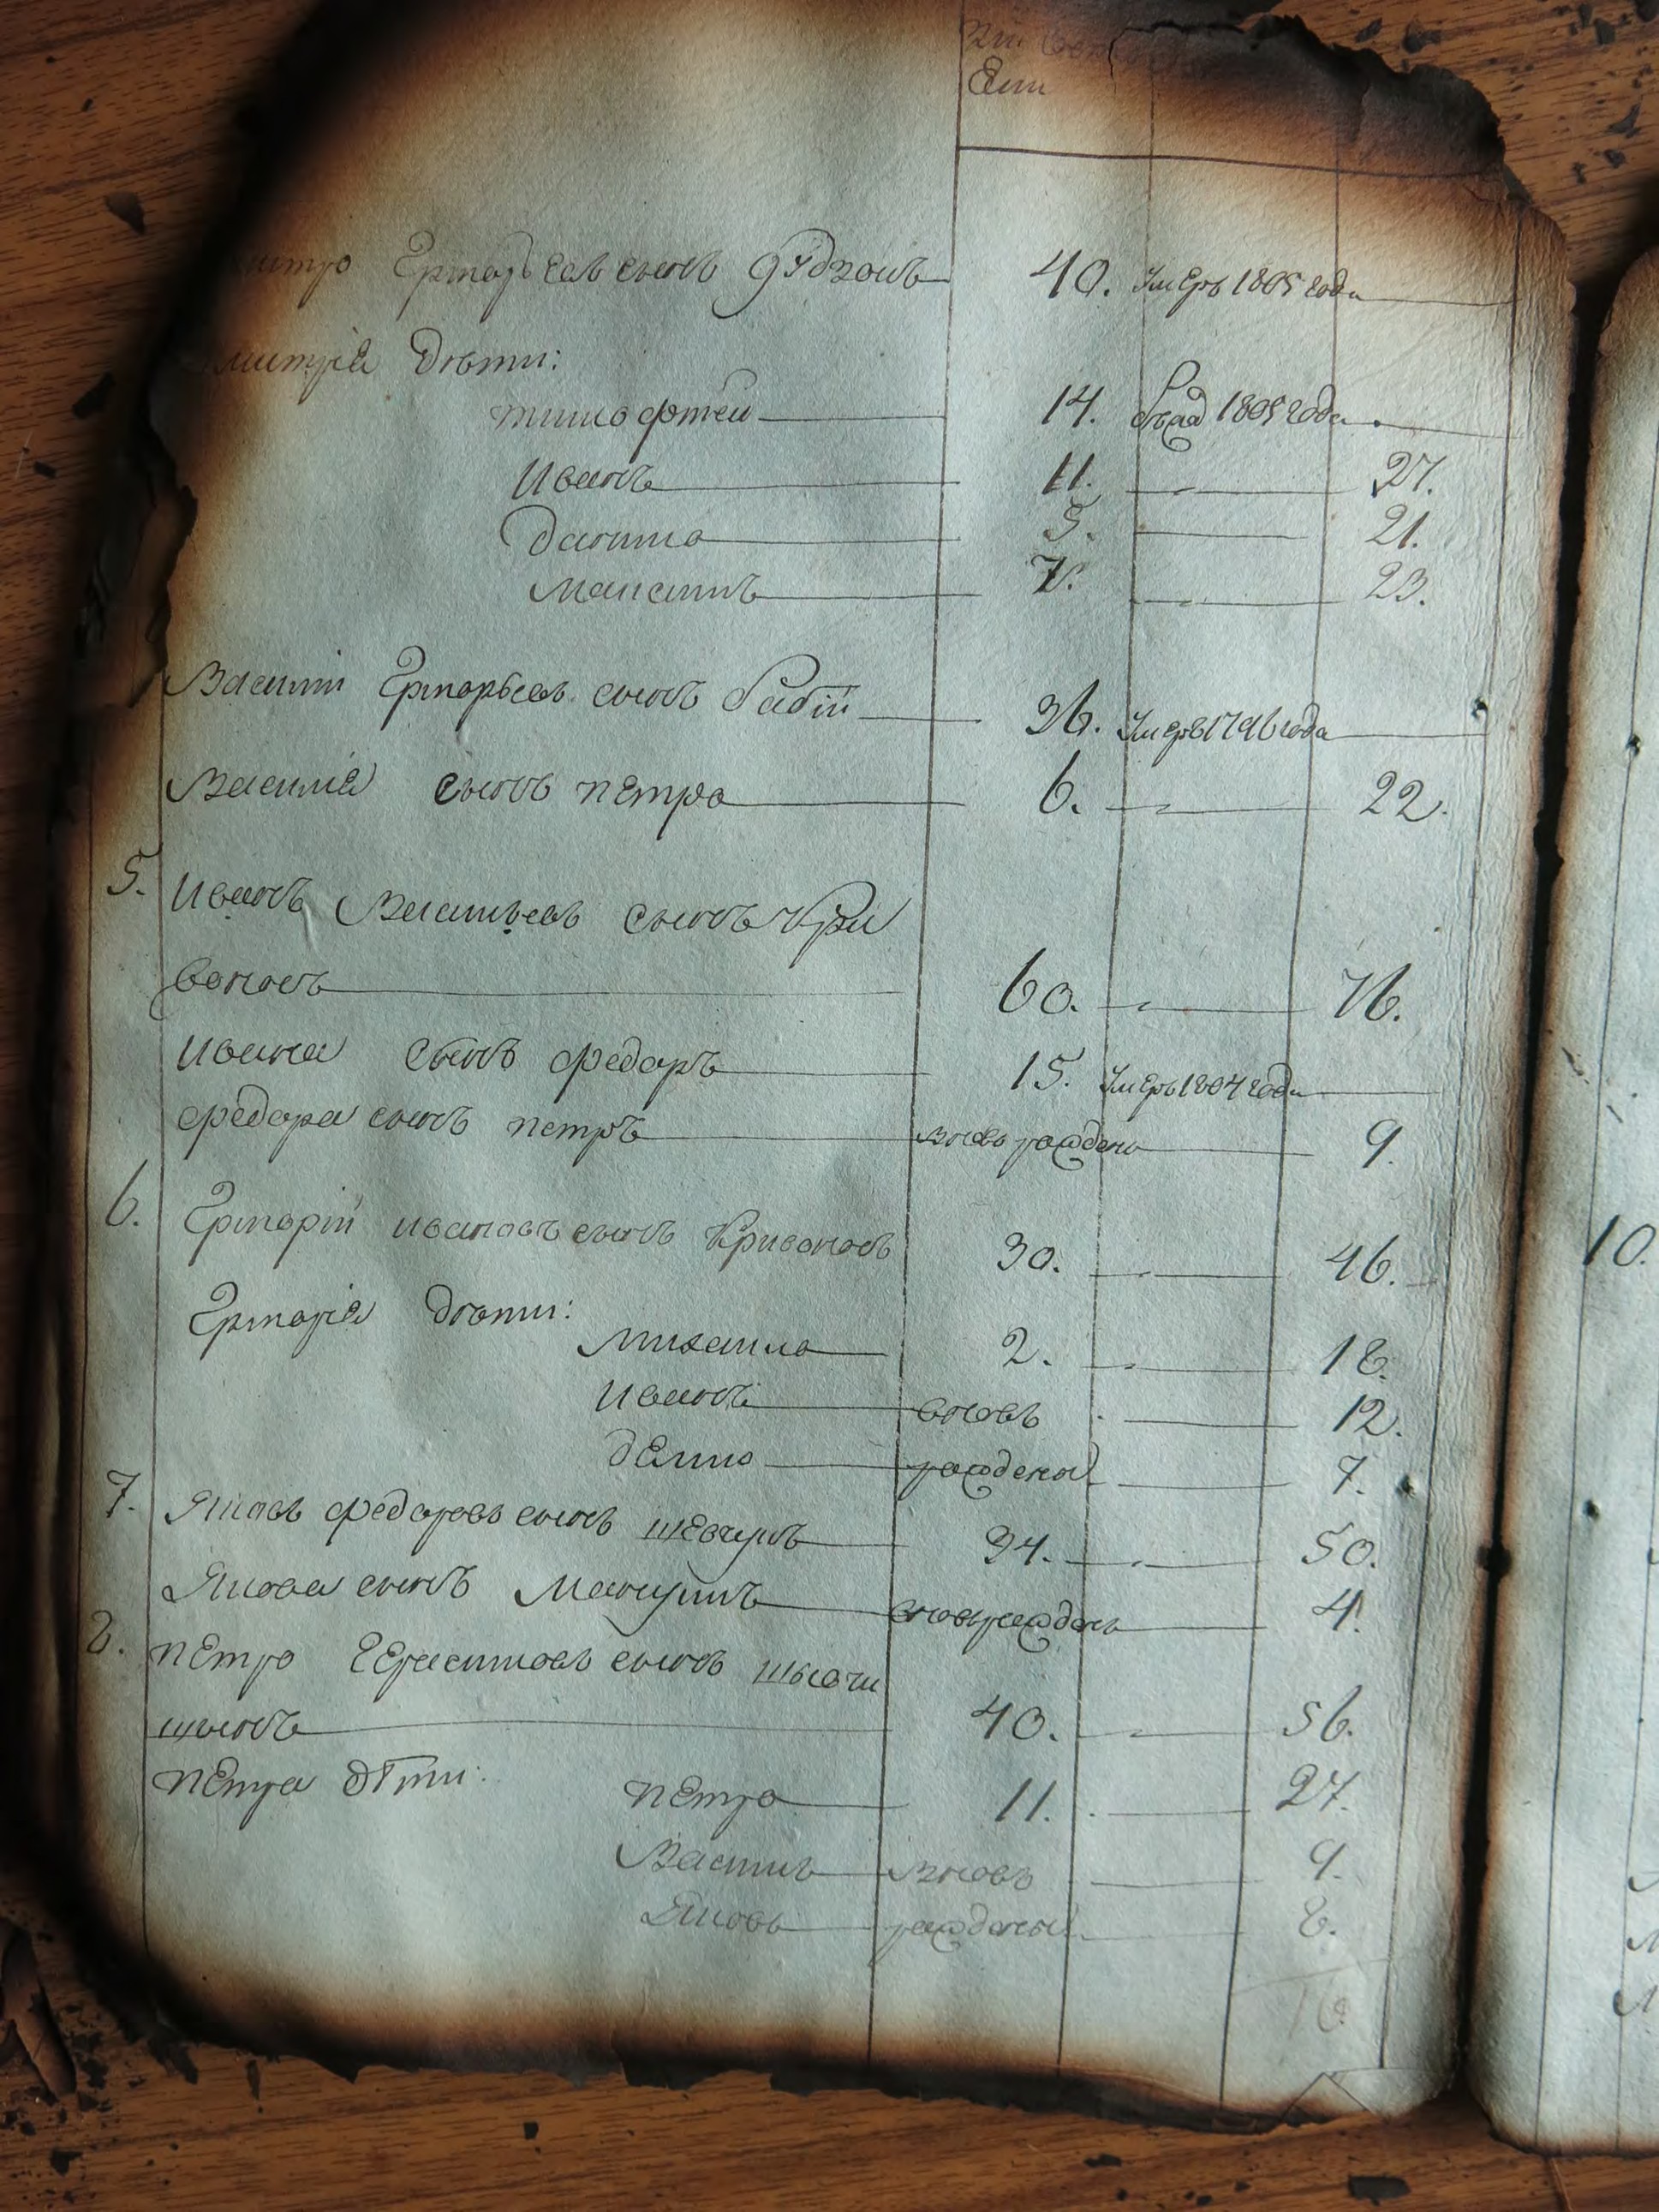 митро Григорьевъ сынъ 40. Умеръ 1805 года
митрія дѣти:
тимофтей 14. 1805 года
Иванъ 11. 27.
данило 5. 21.
максимъ 7. 23.
Василій Григорьевъ сынъ 36. Умеръ 1796 года
Василія сынъ петро 6. 22.
5. Иванъ Васильевъ сынъ Кри
воносъ 60. 76.
Ивана сынъ федоръ 15. Умеръ 1804 года
федора сынъ петръ вновь рожденъ 9.
6. Григорій ивановъ сынъ Кривоносъ 30. 46.
Григорія дѣти:
михайло 2. 18.
Иванъ вновь 12.
демко рождены 7.
7. Яковъ федоровъ сынъ шевчукъ 34. 50.
Якова сынъ вновь рожденъ 4.
8. петро Герасимовъ сынъ
40. 56.
петра дѣти: петро 11. 27.
Василь вновь 9.
Яковъ рождены 8.
10.